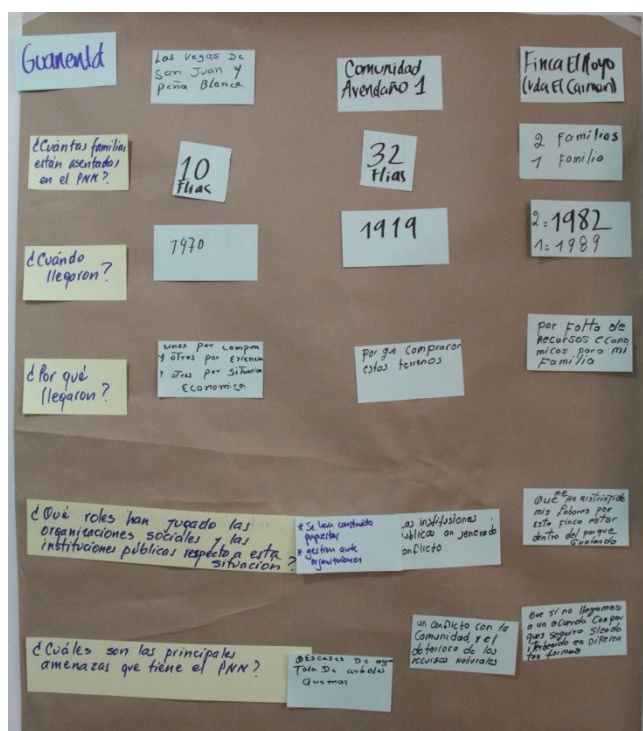 Guanentá
Las Vegas De
San Juan y
peña Blanca
Comunidad
Avendaño 1
Finca El Hoyo
(vda El Carmen)
¿Cuántas familias
están asentadas
en el PNN?
10
Flias
32
Flias
2 familias
1 familia
¿Cuándo
llegaron?
1970
1919
2=1982
1=1989
¿Por qué
llegaron?
unos por compra
y otros por
y otros por
Economica
por que compraron
estos terrenos
por Falta de
Recursos econo
micos para mi
Familia
¿Qué roles han jugado las
organizaciones sociales y las
instituciones públicas respecto a esta
situación?
* Se han construido
propuestas
* gestion ante
organizaciones
as instituciones
ublicas an generado
onflicto
Que me ha
mis labores por
esta finca estar
dentro del parque
¿Cuáles son las principales
amenazas que tiene el PNN?
Escases De
Tala De arboles
Quemas
un conflicto con la
Comunidad y el
deterioro de los
recursos naturales
Que si no llegamos
a un acuerdo con par
ques seguira siendo
en Diferen
tes formas